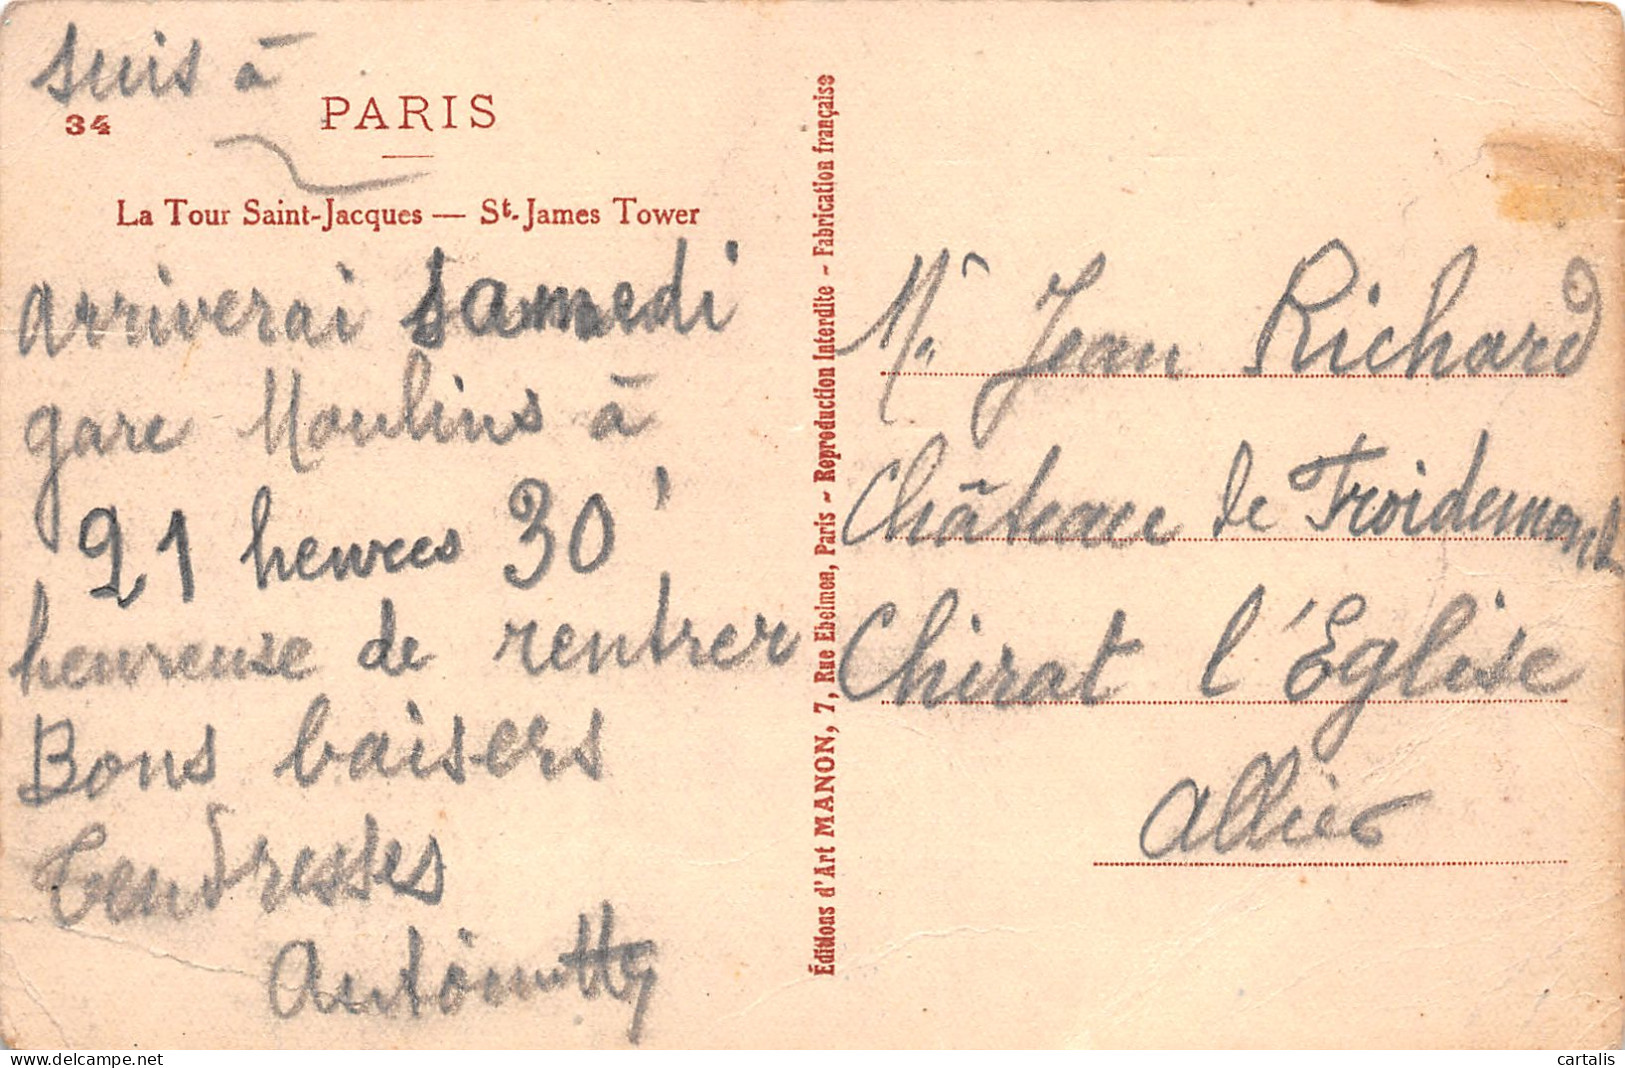 suis à
34
PARIS
La Tour Saint-Jacques — St. James Tower
arriverai samedi
gare Moulins à
21 heures 30'
heureuse de rentrer
Bons baisers
Tendresses
Éditions d'Art MANON, 7, Rue Ebelmen, Paris - Reproduction Interdite - Fabrication française
Mr Jean Richard
Château de Froidemont
Chirat l'Eglise
Allier
www.delcampe.net
cartalis